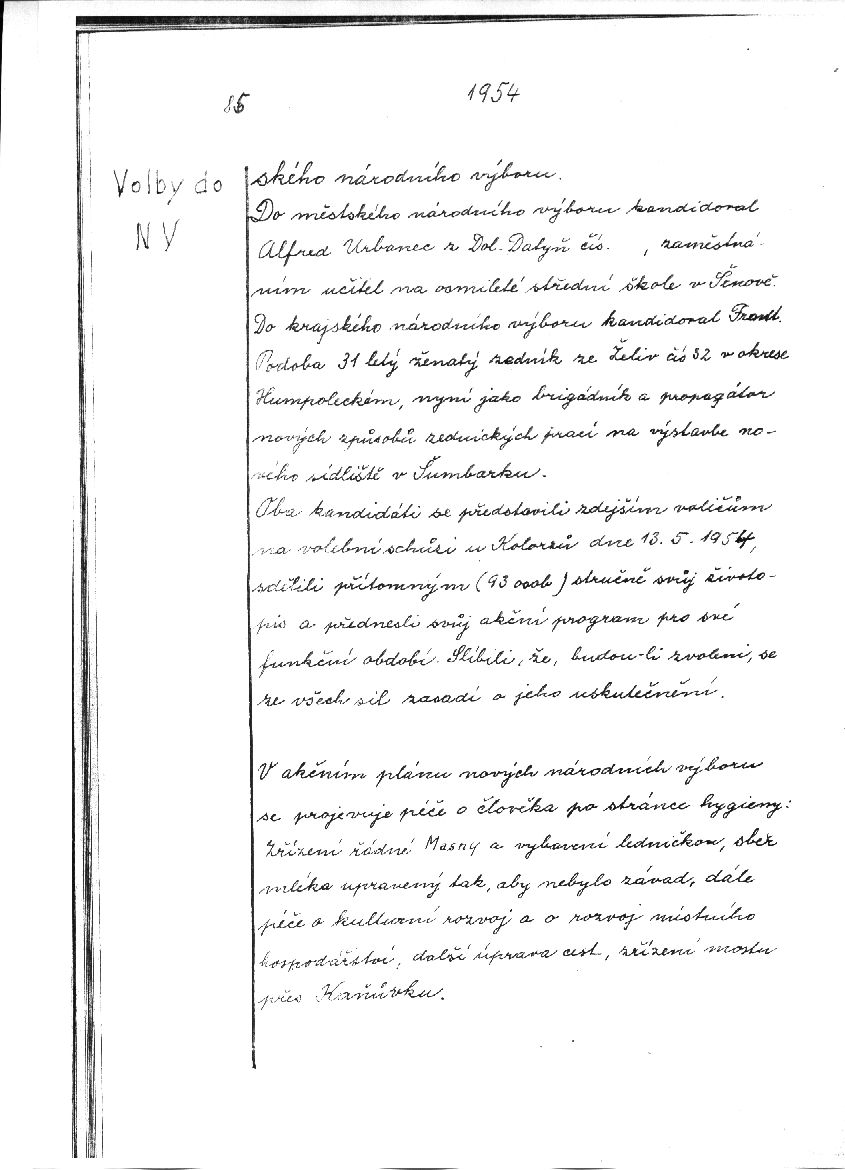 85
1954
Volby do
NV
ského národního výboru.
Do městského národního výboru kandidoval
Alfred Urbanec z Dol. Datyň čís. , zaměstná-
ním učitel na osmileté střední škole v Šenově.
Do krajského národního výboru kandidoval Frant.
Podoba 31 letý ženatý zedník ze Želiv čís 32 v okrese
Humpoleckém, nyní jako brigádník a propagátor
nových způsobů zednických prací na výstavbe no-
vého sídliště v Šumbarku.
Oba kandidáti se představili zdejším voličům
na volební schůzi u Kolorzů dne 13. 5. 1954,
sdělili přítomným (93 osob) stručně svůj životo-
pis a přednesli svůj akční program pro své
funkční období. Slíbili, že, budou-li zvoleni, se
ze všech sil zasadí o jeho uskutečnění.
V akčním plánu nových národních výboru
se projevuje péče o člověka po stránce hygieny:
Zřízení řádné Masny a vybavení ledničkou, sběr
mléka upravený tak, aby nebylo závad, dále
péče o kulturní rozvoj a o rozvoj místního
hospodářství, další úprava cest, zřízení mostu
přes Kaňůvku.